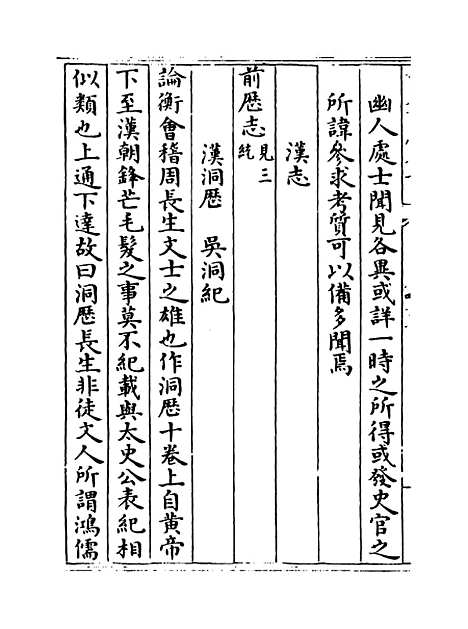 幽人處士聞見各異或詳一時之所得或發史官之
所諱參求考質可以備多聞焉
漢志
前歴志見三統
漢洞歴　吳洞紀
論衡會稽周長生文士之雄也作洞歴十卷上自黄帝
下至漢朝鋒芒毛髮之事莫不紀載與太史公表紀相
似類也上通下達故曰洞歴長生非徒文人所謂鴻儒